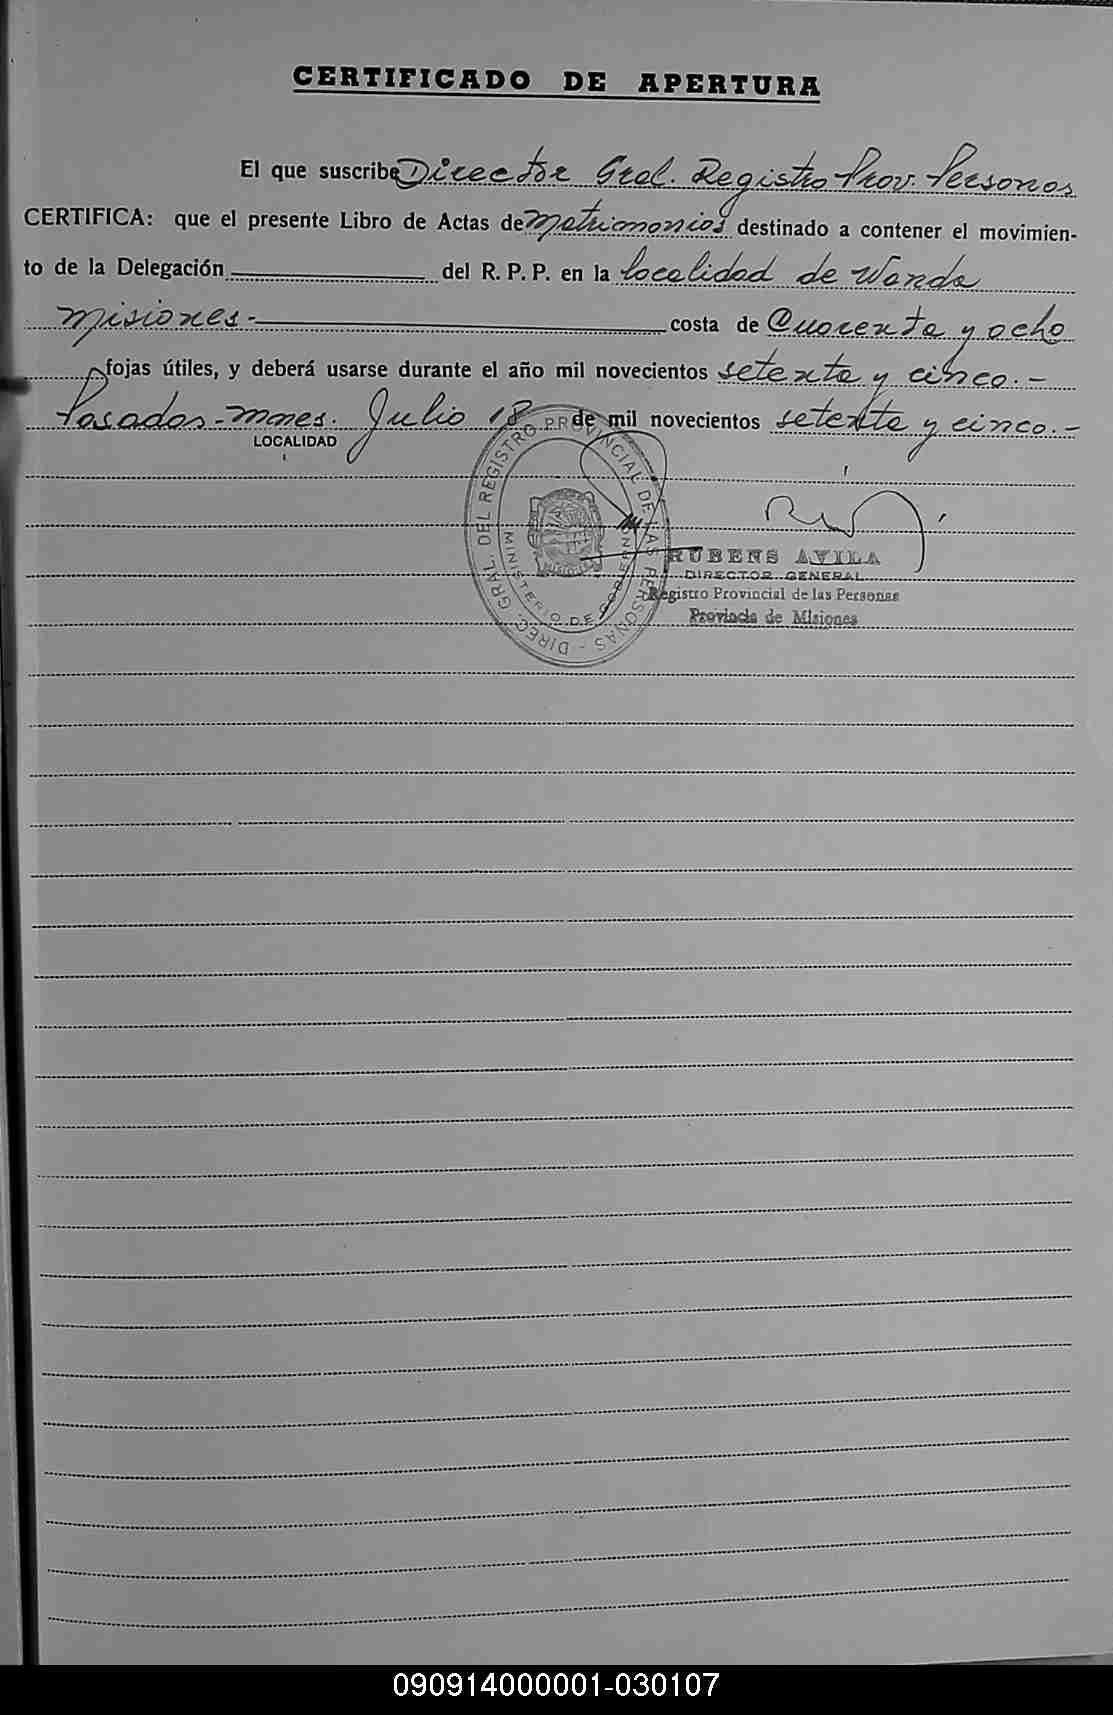 CERTIFICADO DE APERTURA
El que suscribe Director Gral. Registro Prov. Personas
CERTIFICA: que el presente Libro de Actas de Matrimonios destinado a contener el movimien-
to de la Delegación del R. P. P. en la localidad de Wanda
Misiones.- costa de Cuarenta y ocho
fojas útiles, y deberá usarse durante el año mil novecientos setenta y cinco.-
Posadas-Mnes. Julio 18 de mil novecientos setenta y cinco.-
LOCALIDAD
DIREC. GRAL. DEL REGISTRO PROVINCIAL DE LAS PERSONAS -
MINISTERIO DE GOBIERNO
RUBENS AVILA
DIRECTOR GENERAL
Registro Provincial de las Personas
Provincia de Misiones
090914000001-030107